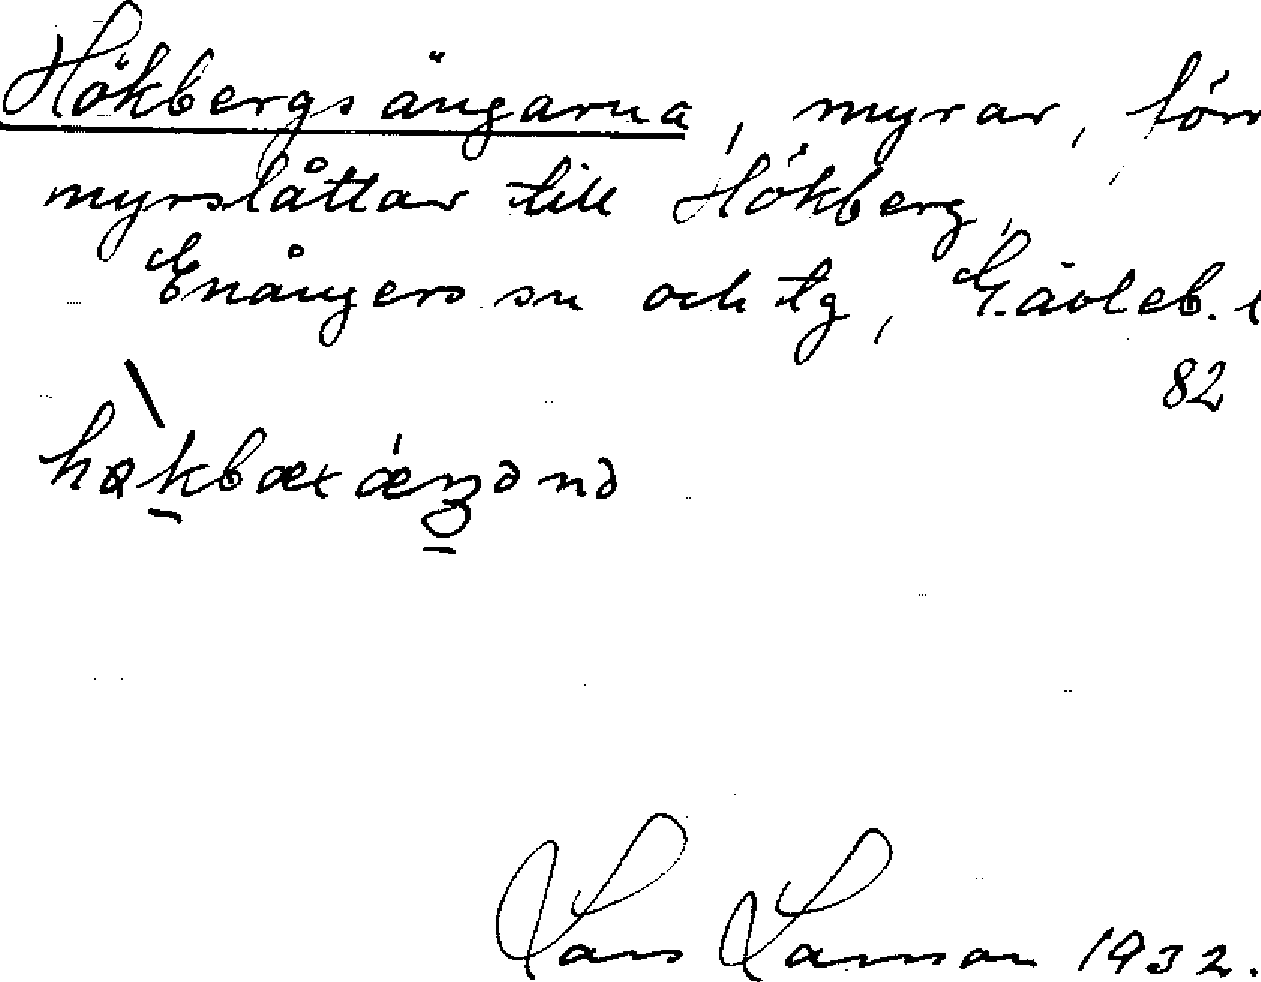 Hökbergsängarna, myrar, förr
myrslåttar till Hökberg,
Enångers sn och tg, Gävleb. l
82
Lars Larsson 1932.